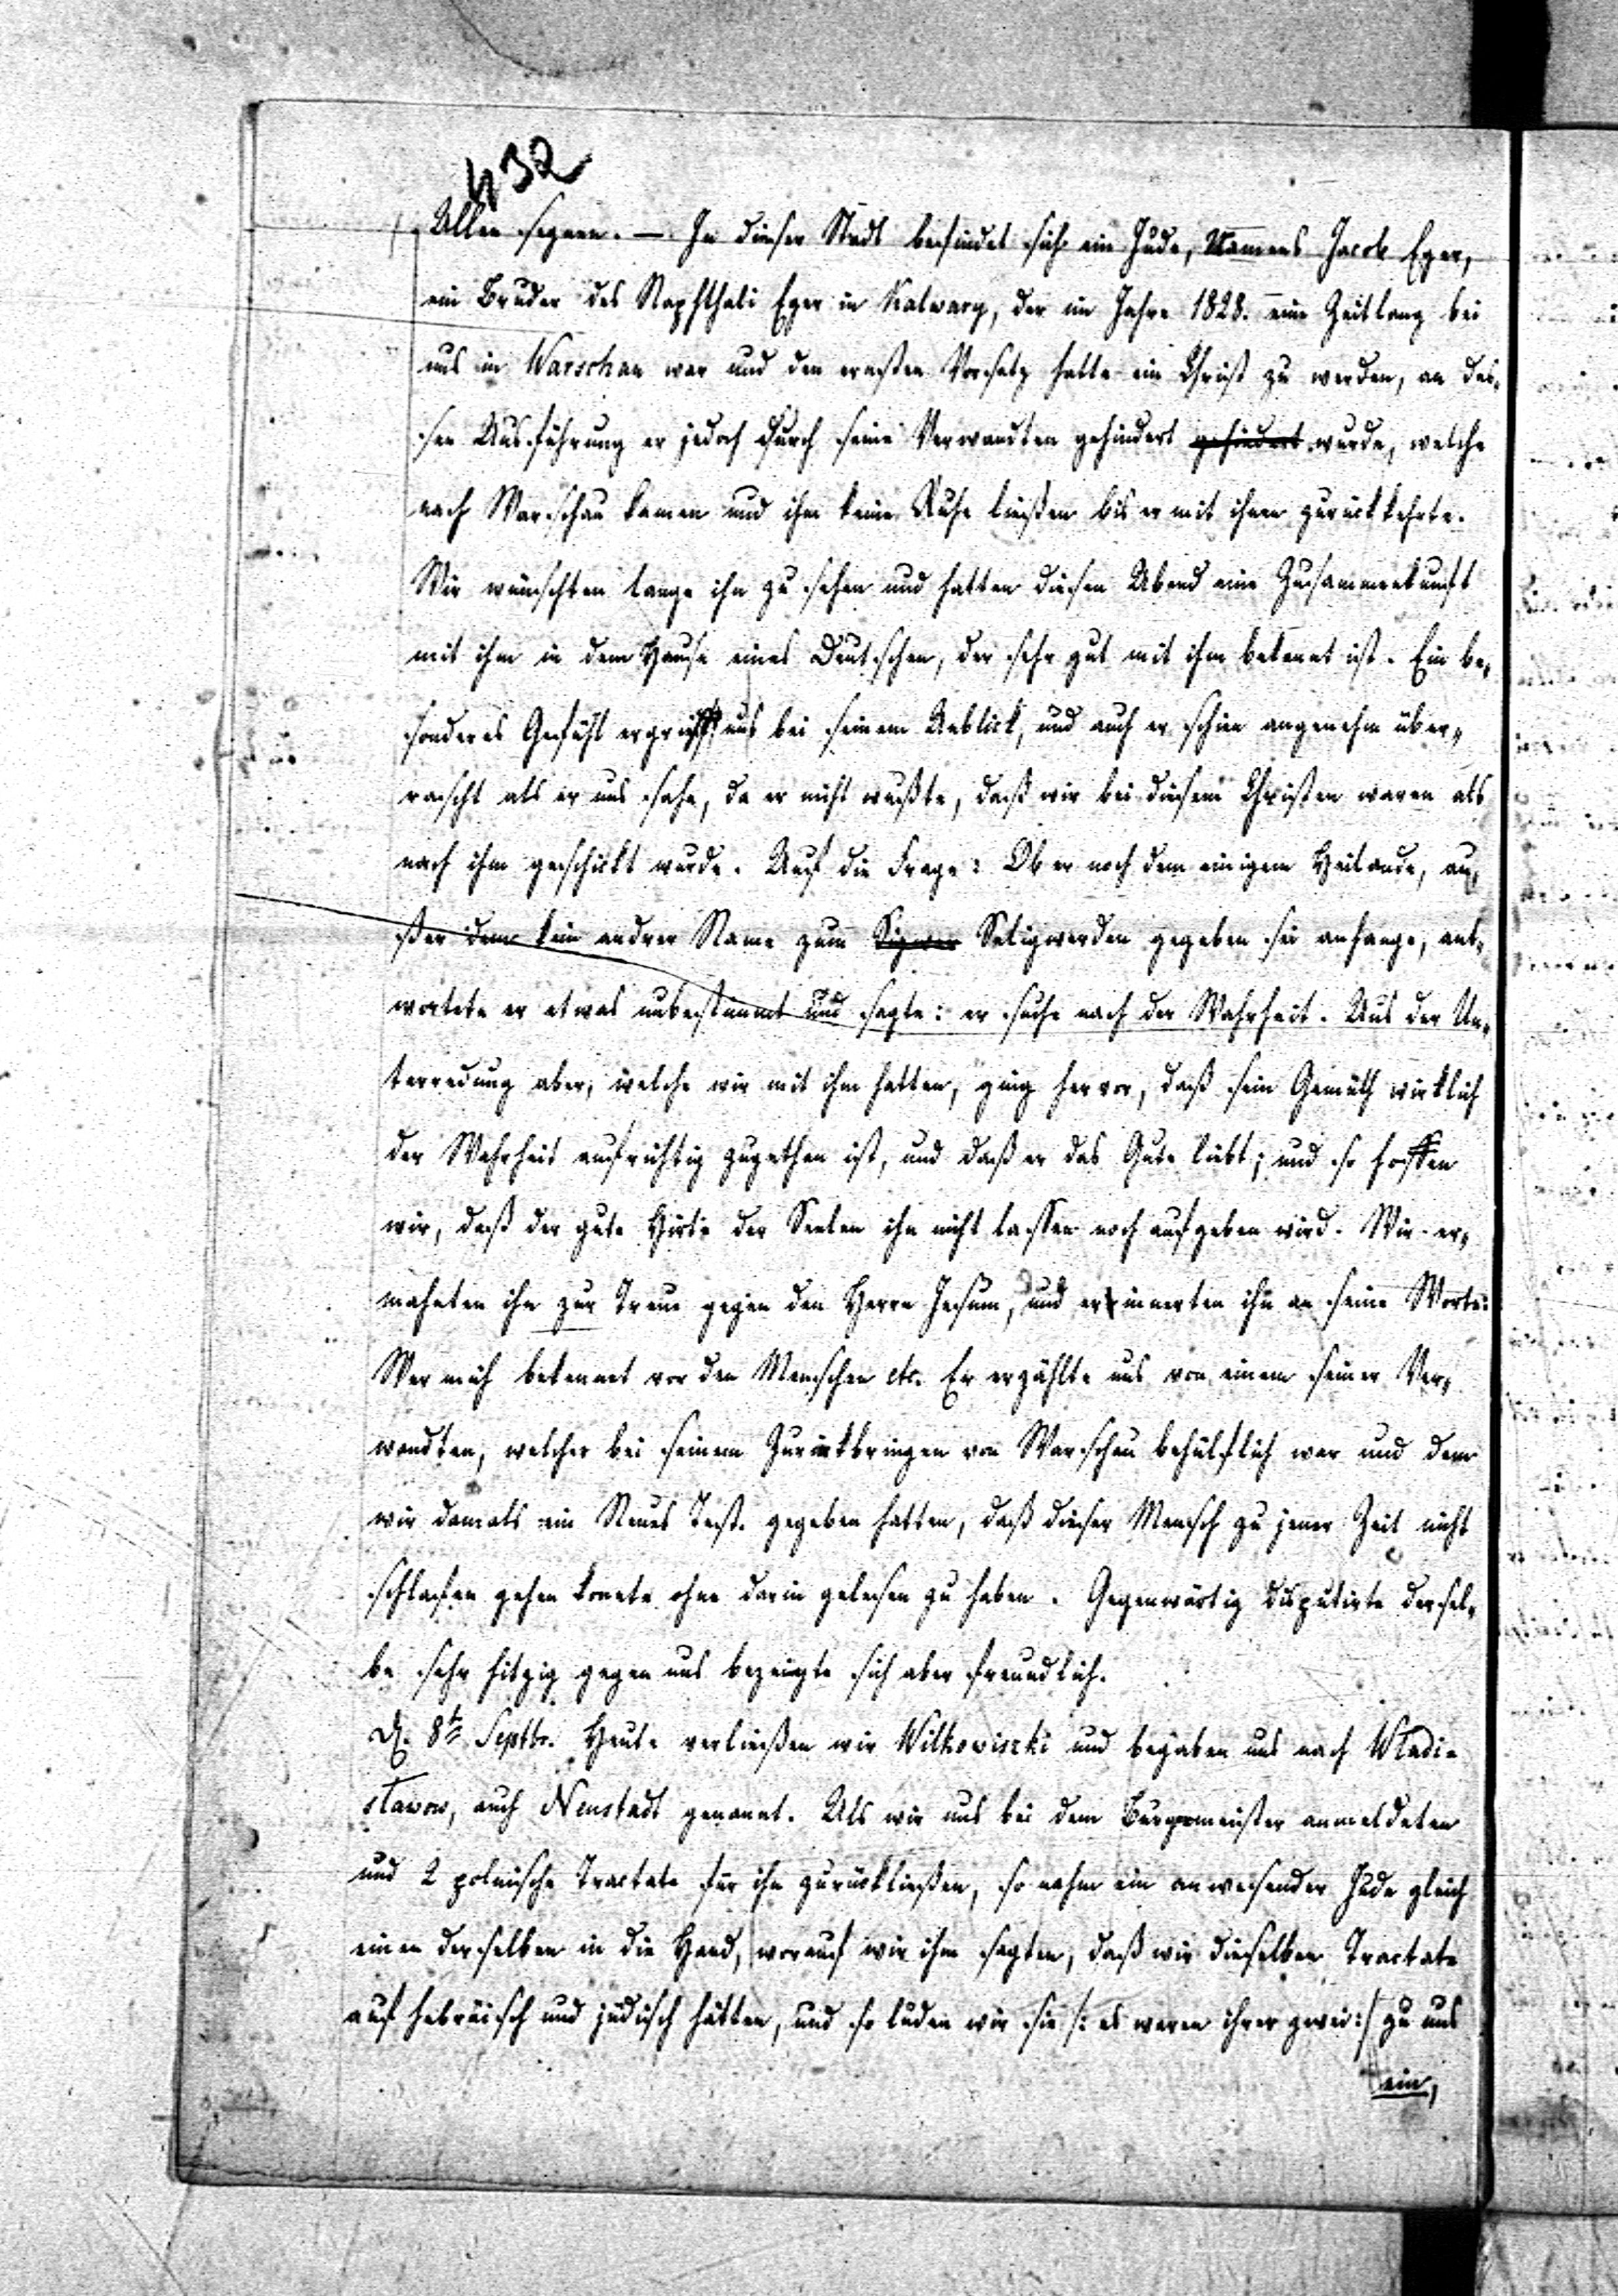 432
Allen segnen. — In dieser Stadt befindet sich ein Jude, Namens Jacob Eger,
ein Bruder des Naphthali Eger in Kalwary, der im Jahre 1828. eine Zeitlang bei
uns in Warschau war und den ernsten Vorsatz hatte ein Christ zu werden, an des-
sen Ausführung er jedoch durch seine Verwandten gehindert gehindert wurde, welche
nach Warschau kamen und ihm keine Ruhe ließen bis er mit ihnen zurückkehrte.
Wir wünschten lange ihn zu sehen und hatten diesen Abend eine Zusammenkunft
mit ihm in dem Hause eines Deutschen, der sehr gut mit ihm bekannt ist. Ein be-
sonderes Gefühl ergriff uns bei seinem Anblick, und auch er schien angenehm über-
rascht als er uns sahe, da er nicht wußte, daß wir bei diesem Christen waren als
nach ihm geschickt wurde. Auf die Frage: Ob er noch dem einigen Heilande, au-
ßer dem kein andrer Name zum Seligwerden gegeben sei anhange, ant-
wortete er etwas unbestimmt und sagte: er suche nach der Wahrheit. Aus der Un-
terredung aber, welche wir mit ihm hatten, ging hervor, daß sein Gemüth wirklich
der Wahrheit aufrichtig zugethan ist, und daß er das Gute liebt; und so hoffen
wir, daß der gute Hirte der Seelen ihn nicht lassen noch aufgeben wird. Wir er-
mahnten ihn zur Treue gegen den Herrn Jesum, und erinnerten ihn an seine Worte:
Wer mich bekennet vor den Menschen etc. Er erzählte uns von einem seiner Ver-
wandten, welcher bei seinem Zurückbringen von Warschau behülflich war und dem
wir damals ein Neues Test. gegeben hatten, daß dieser Mensch zu jener Zeit nicht
schlafen gehen konnte ohne darin gelesen zu haben. Gegenwärtig disputirte dersel-
be sehr hitzig gegen uns bezeigte sich aber freundlich.
D. 8te Septbr. Heute verließen wir Wilkowiszki und begaben uns nach Wladi-
sławow, auch Neustadt genannt. Als wir uns bei dem Burgemeister anmeldeten
und 2 polnische Tractate für ihn zurückließen, so nahm ein anwesender Jude gleich
einen derselben in die Hand, worauf wir ihm sagten, daß wir dieselben Tractate
auf hebräisch und jüdisch hätten, und so luden wir sie /: es waren ihrer zwei :/ zu uns
ein,